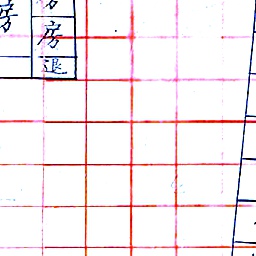 房
房
退